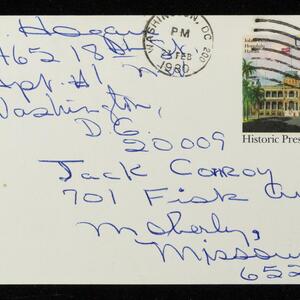 . Hogan
1465 18th St. N
Apt. #1 N
Washington,
D.C.
20009
WASHINGTON, DC 200
PM
FEB
1980
Iolani
Honolulu
Hawaii
Historic Pres
Jack Conroy
701 Fisk Av
Moberly,
Missou
652